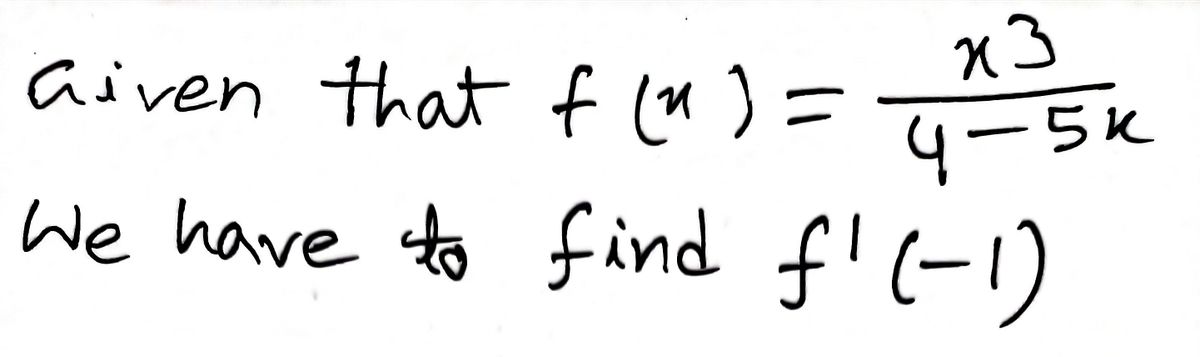 Given that f(x) = x3 / 4-5x
We have to find f'(-1)